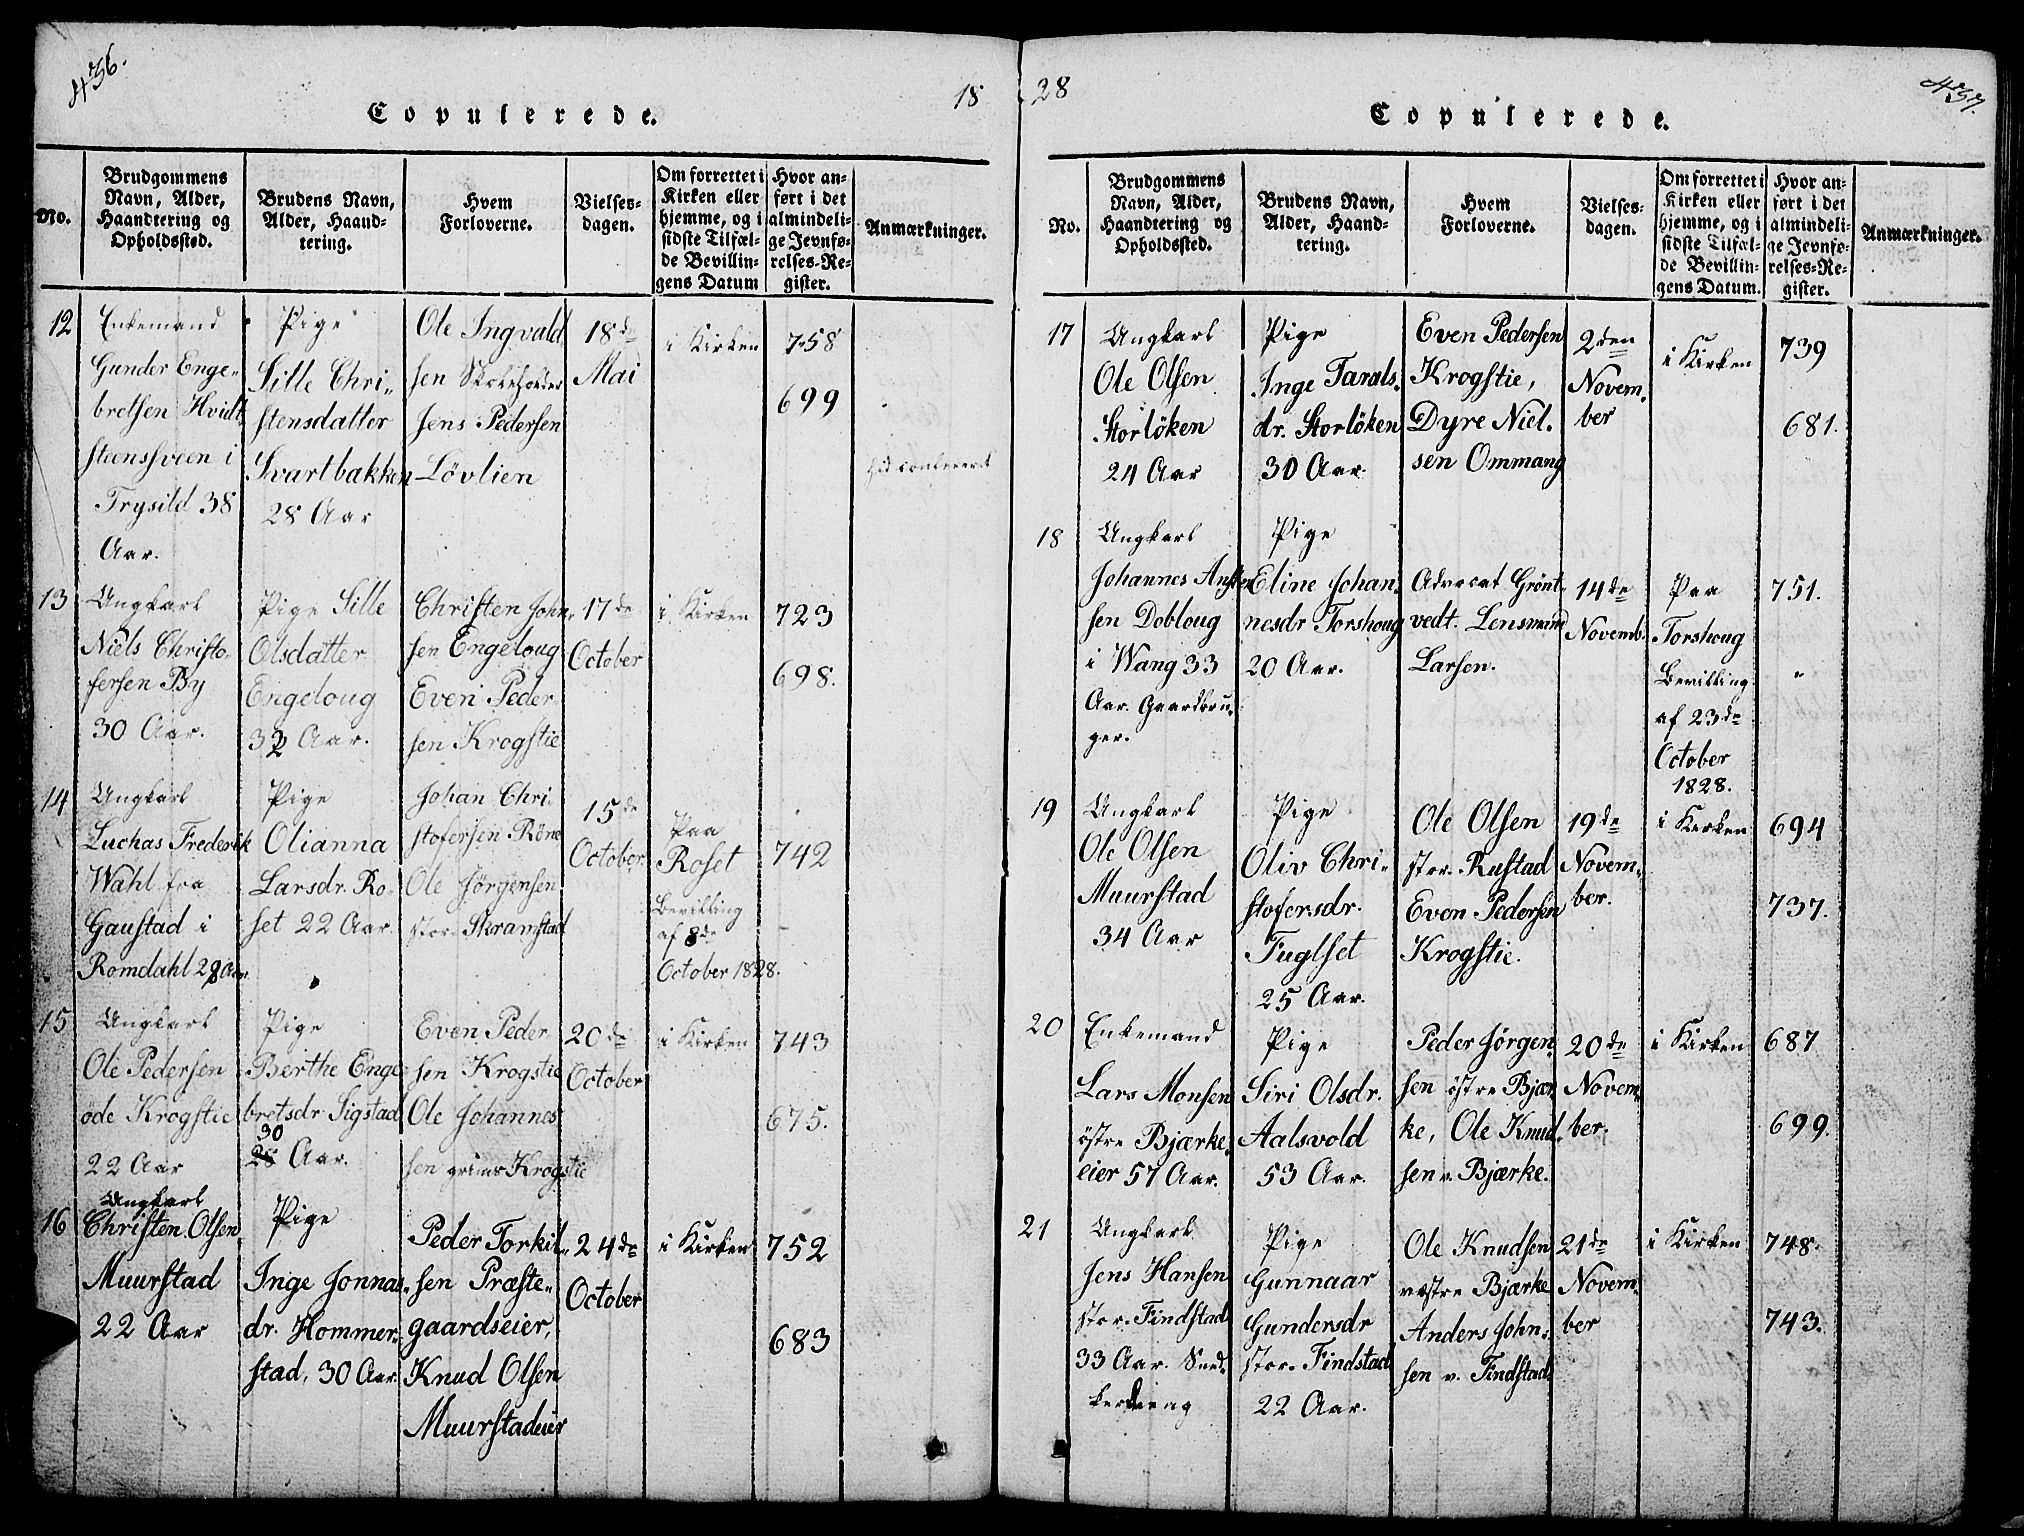 436.
18
Copulerede.
No.
Brudgommens
Navn, Alder,
Haandtering og
Opholdssted.
Brudens Navn,
Alder, Haand-
tering.
Hvem
Forloverne.
Vielses-
dagen.
Om forrettet i
Kirken eller
hjemme, og i
sidste Tilfæl-
de Bevillin-
gens Datum
Hvor an-
ført i det
almindeli-
ge Jevnfø-
relses-Re-
gister.
Anmærkninger.
12
Enkemand
Gunder Enge-
bretsen Hvidt-
steensveen i
Trysild 38
Aar.
Pige
Sille Chri-
stensdatter
Svartbakken
28 Aar
Ole Ingvald
sen Skoleholder
Jens Pedersen
Løvlien
18de
Mai
i Kirken
758
699
13
Ungkarl
Niels Christo-
fersen By
30 Aar.
Pige Sille
Olsdatter
Engeloug
32 Aar.
Christen John-
sen Engeloug
Even Peder
sen Krogstie
17de
October
i Kirken
723
698.
14
Ungkarl
Luchas Frederik
Wahl fra
Gaustad i
Romdahl 28 Aar.
Pige
Olianna
Larsdr. Ro-
set 22 Aar.
Johan Chri
stofersen Röne
Ole Jörgensen
stor. Skramstad
15de
October
Paa
Roset
Bevilling
af 8de
October 1828.
742
15
Ungkarl
Ole Pedersen
öde Krogstie
22 Aar
Pige
Berthe Enge
bretsdr Sigstad
30
28 Aar.
Even Peder
sen Krogstie
Ole Johannes
sen grims Krogstie
20de
October
i Kirken
743
675.
16
Ungkarl
Christen Olsen
Muurstad
22 Aar
Pige
Inge Jonnas-
dr. Hommer-
stad, 30 Aar
Peder Torkil-
sen Præste-
gaardseier,
Knud Olsen
Muurstadeier
24de
October
i Kirken
752
683
28
437.
Copulerede.
No.
Brudgommens
Navn, Alder,
Haandtering og
Opholdssted.
Brudens Navn,
Alder, Haand-
tering.
Hvem
Forloverne.
Vielses-
dagen.
Om forrettet i
Kirken eller
hjemme, og i
sidste Tilfæl-
de Bevillin-
gens Datum.
Hvor an-
ført i det
almindeli-
ge Jevnfø-
relses-Re-
gister.
Anmærkninger.
17
Ungkarl
Ole Olsen
Storlöken
24 Aar
Pige
Inge Tarals-
dr. Storlöken
30 Aar.
Even Pedersen
Krogstie,
Dyre Niel-
sen Ommang
2den
Novem-
ber
i Kirken
739
681.
18
Ungkarl
Johannes Ansten
sen Dobloug
i Wang 33
Aar. Gaardbru-
ger.
Pige
Eline Johan-
nesdr Torshoug
20 Aar.
Advocat Grönt-
vedt. Lensmand
Larsen.
14de
Novemb.
Paa
Torshoug
Bevilling
af 23de
October
1828.
751.
"
19
Ungkarl
Ole Olsen
Muurstad
34 Aar
Pige
Oliv Chri-
stofersdr.
Fuglset
25 Aar.
Ole Olsen
stor. Rustad
Even Pedersen
Krogstie.
19de
Novem-
ber.
i Kirken
694
737.
20
Enkemand
Lars Monsen
östre Bjærke-
eier 57 Aar.
Pige
Siri Olsdr.
Aalsvold
53 Aar.
Peder Jörgen-
sen östre Bjær
ke, Ole Knud-
sen v. Bjærke.
20de
Novem-
ber.
i Kirken
687
699.
21
Ungkarl
Jens Hansen
stor. Findstad
33 Aar. Sned-
Pige
Gunnaar
Gundersdr
stor. Findstad
22 Aar.
Ole Knudsen
vestre Bjærke
Anders John-
sen v. Findstad
21de
Novem-
ber
i Kirken
748.
743.